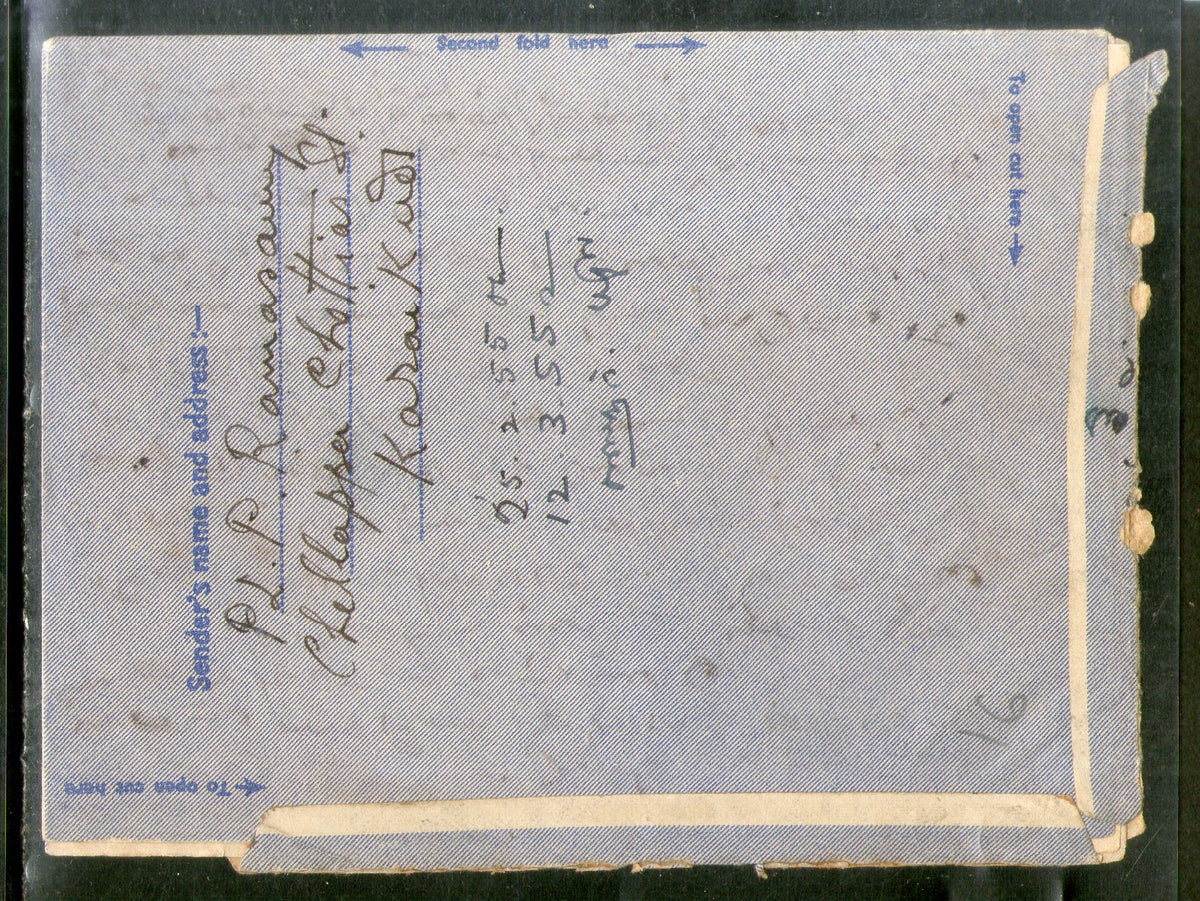 Second fold here
To open cut here
Sender's name and address :—
P. L. P. Ramasamy
Chellappa Chettiar St.
Karaikudi
25.2.55
12.3.55
16
To open cut here